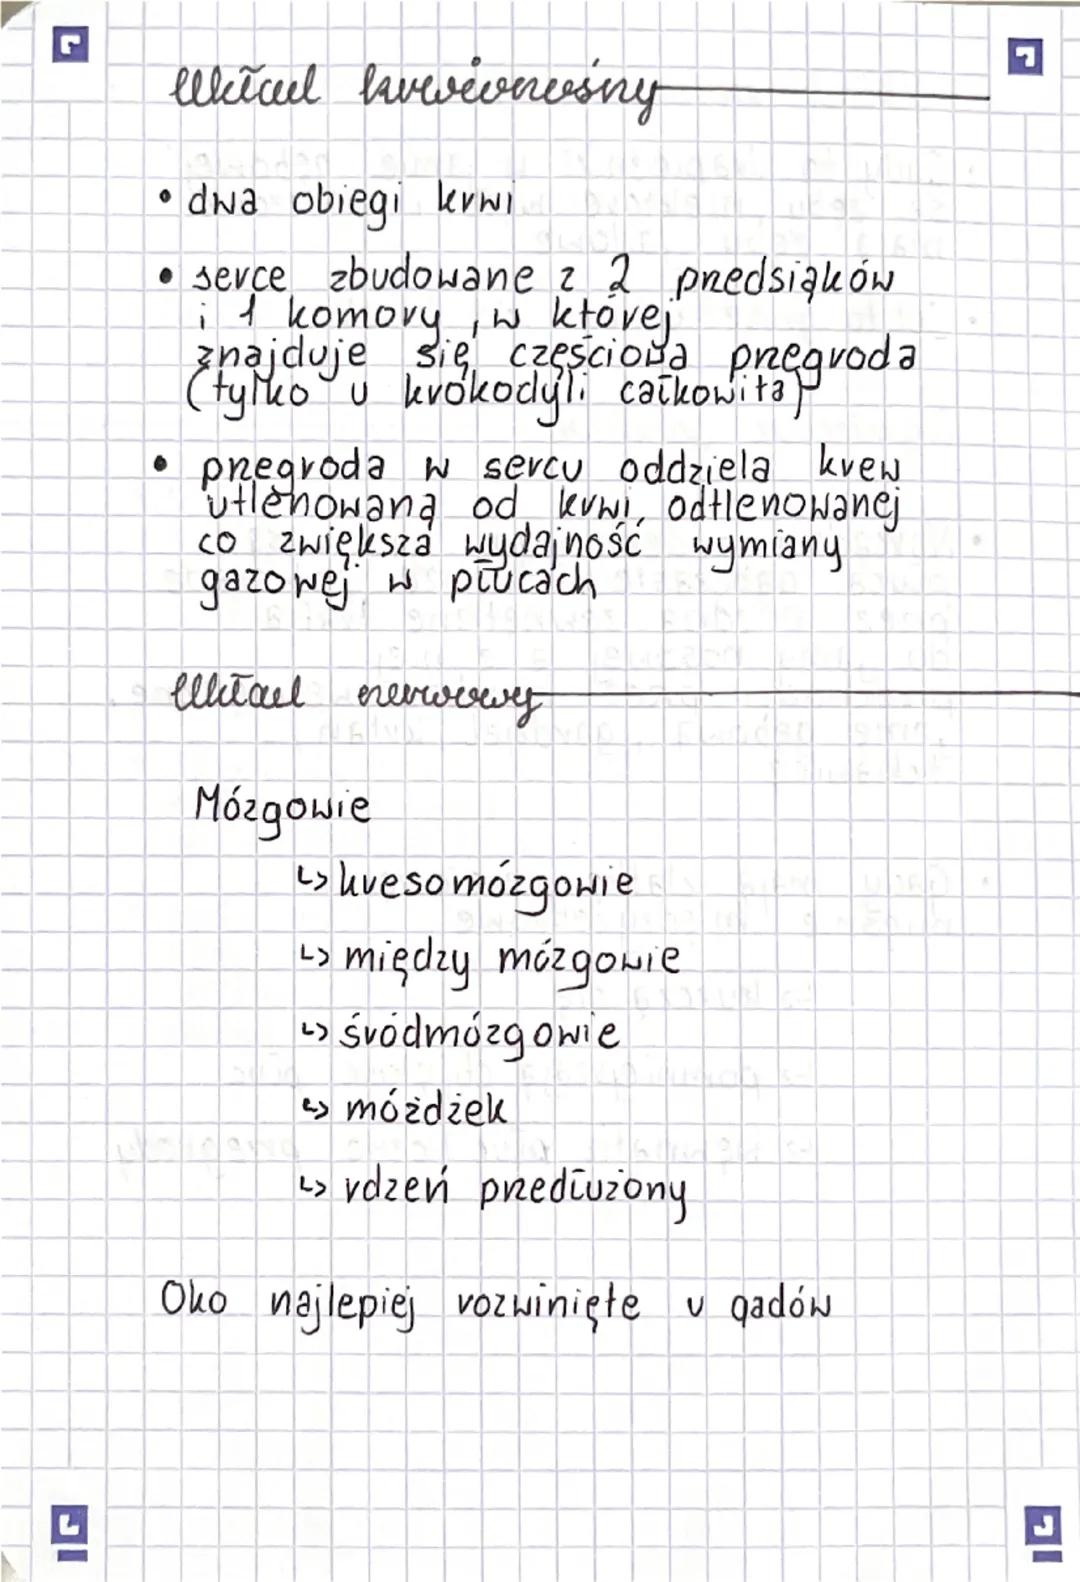 Układ krwionośny
• dwa obiegi krwi
• serce zbudowane z 2 przedsiąków
i 1 komory, w której
znajduje się częściowa przegroda
(tylko u krokodyli całkowita)
• przegroda w sercu oddziela krew
utlenowaną od krwi, odtlenowanej
co zwiększa wydajność wymiany
gazowej w płucach
Układ nerwowy
Mózgowie
↳ kresomózgowie
↳ między mózgowie
↳ śródmózgowie
↳ móżdżek
↳ rdzeń przedłużony
Oko najlepiej rozwinięte u gadów